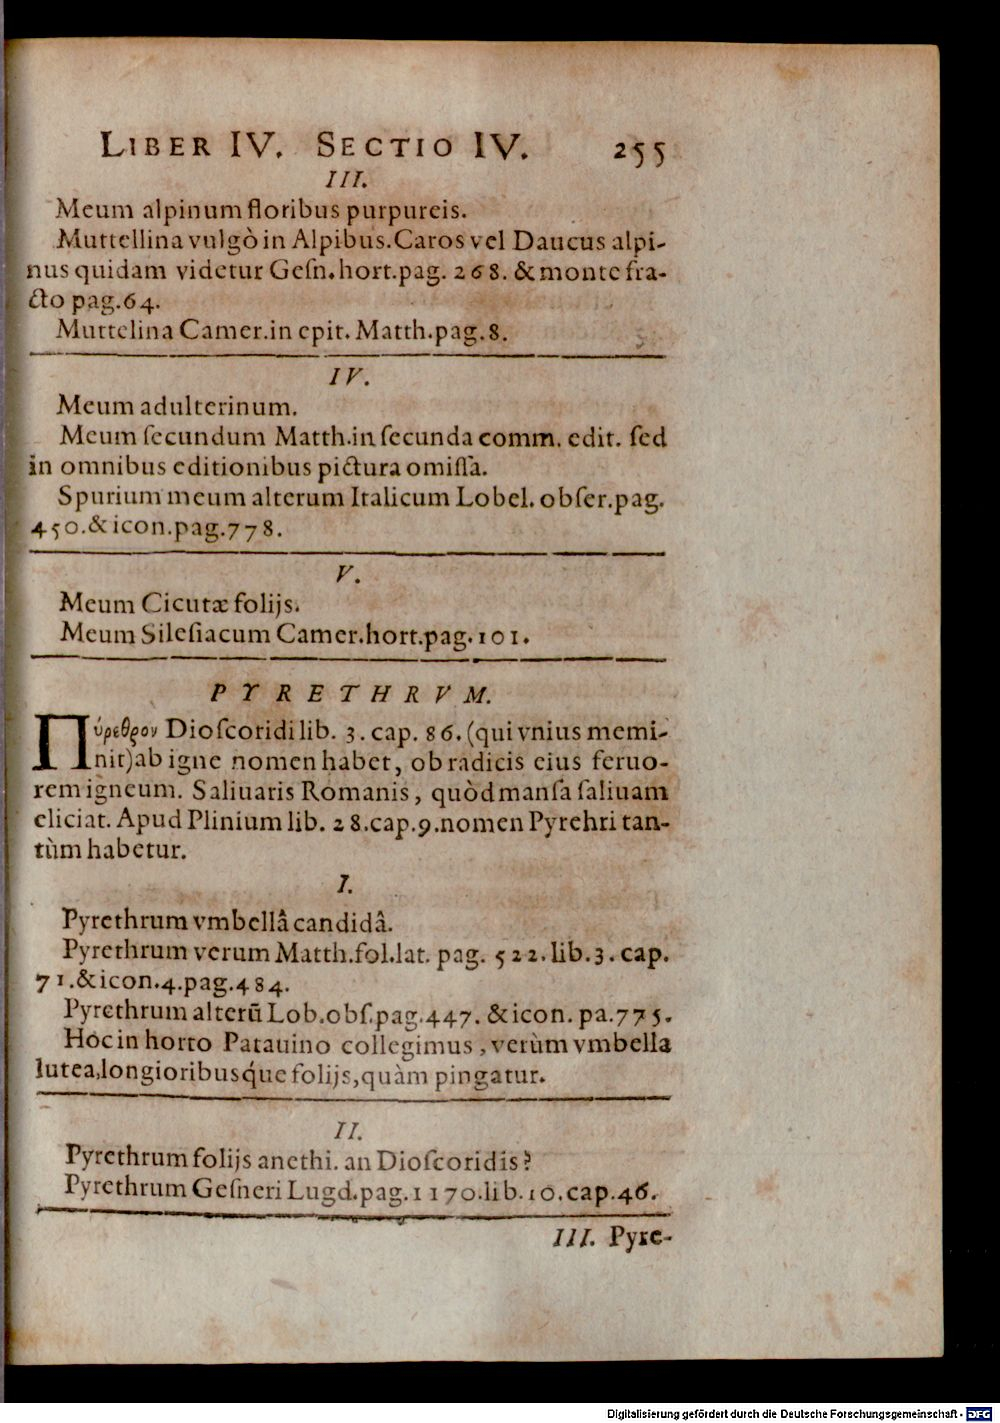 LIBER IV. SECTIO IV. 255
III.
Meum alpinum floribus purpureis.
Muttellina vulgò in Alpibus. Caros vel Daucus alpi-
nus quidam videtur Geſn. hort. pag. 268. & monte fra-
cto pag. 64.
Muttelina Camer. in epit. Matth. pag. 8.
IV.
Meum adulterinum.
Meum ſecundum Matth. in ſecunda comm. edit. ſed
in omnibus editionibus pictura omiſſa.
Spurium meum alterum Italicum Lobel. obſer. pag.
450. & icon. pag. 778.
V.
Meum Cicutæ folijs.
Meum Sileſiacum Camer. hort. pag. 101.
PYRETHRVM.
Πύρεθρον Dioſcoridi lib. 3. cap. 86. (qui vnius memi-
nit) ab igne nomen habet, ob radicis eius feruo-
rem igneum. Saliuaris Romanis, quòd manſa ſaliuam
eliciat. Apud Plinium lib. 28. cap. 9. nomen Pyrehri tan-
tùm habetur.
I.
Pyrethrum vmbellâ candidâ.
Pyrethrum verum Matth. fol. lat. pag. 522. lib. 3. cap.
71. & icon. 4. pag. 484.
Pyrethrum alterū Lob. obſ. pag. 447. & icon. pa. 775.
Hoc in horto Patauino collegimus, verùm vmbella
lutea, longioribusq́ue folijs, quàm pingatur.
II.
Pyrethrum folijs anethi. an Dioſcoridis?
Pyrethrum Geſneri Lugd. pag. 1170. lib. 10. cap. 46.
III. Pyre-
Digitalisierung gefördert durch die Deutsche Forschungsgemeinschaft - DFG